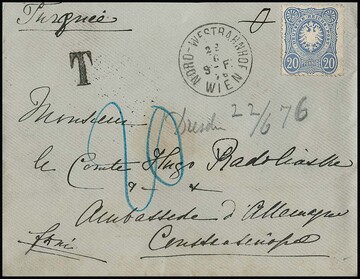 Turquie
T
NORD-WESTBAHNHOF
WIEN
20 20
20
Dresden 22/6 76
Monsieur
le Comte Hugo Radolinsky
Ambassade d'Allemagne
Constantinople